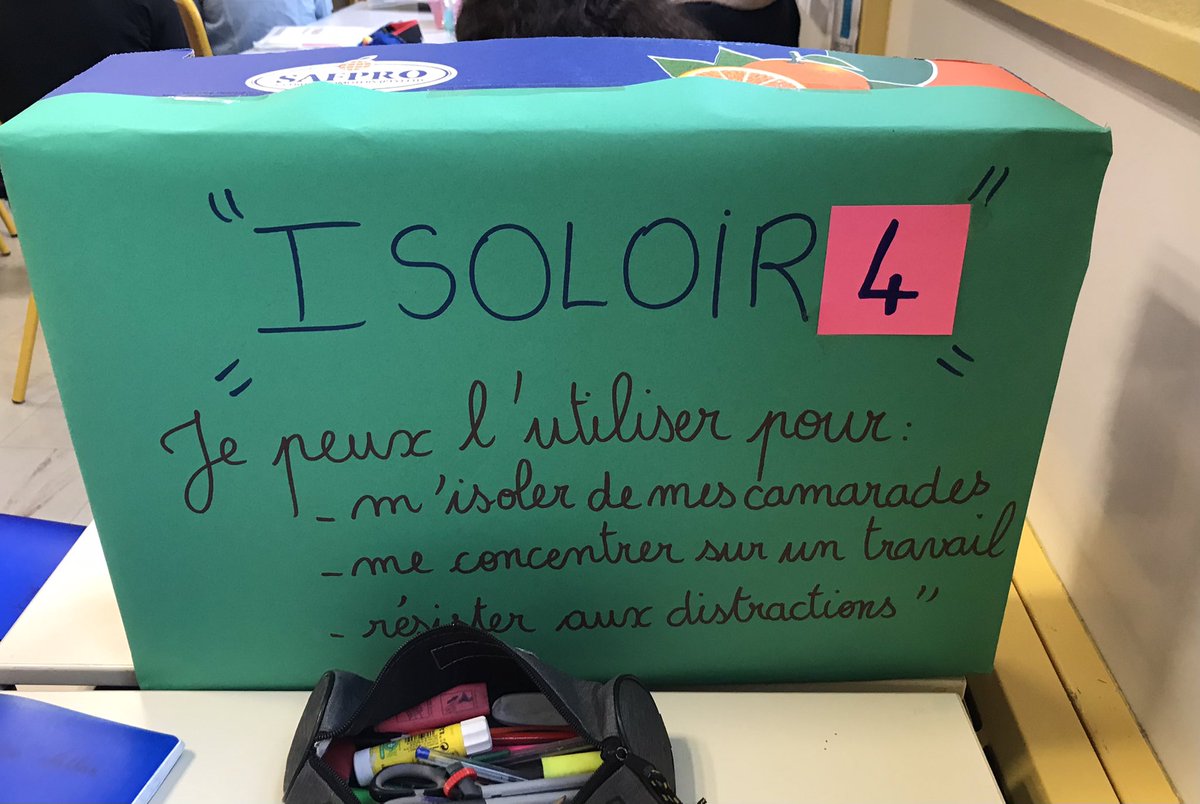 SAFPRO
" ISOLOIR 4 "
" Je peux l'utiliser pour : "
- m'isoler de mes camarades
- me concentrer sur un travail
- résister aux distractions "